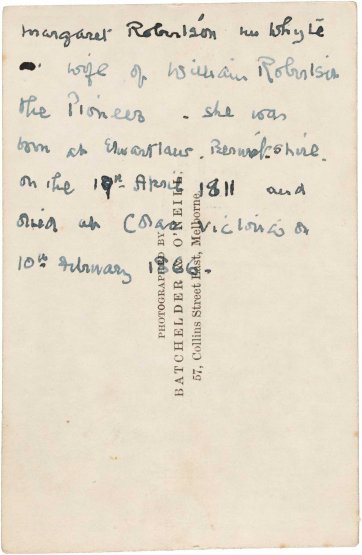 Margaret Robertson née Whyte
wife of William Robertson
the Pioneer. she was
born at Berwickshire.
on the April 1811 and
died at Colac Victoria on
10th February 1866.
PHOTOGRAPHED BY
BATCHELDER & O'NEILL,
57, Collins Street East, Melborne.